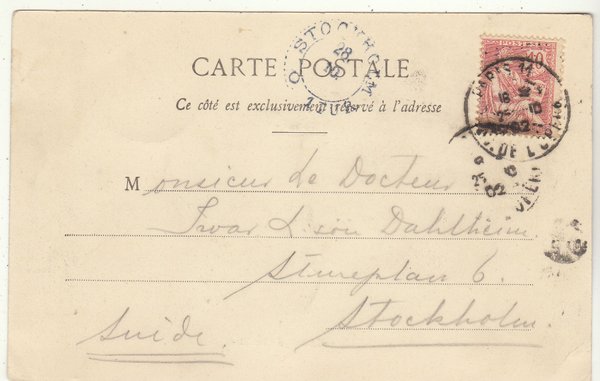 STOCKHOLM
28
10
1 TUR
POSTES
10
PARIS 11
02
DE L'OPERA
CARTE POSTALE
Ce côté est exclusivement réservé à l'adresse
Monsieur Le Docteur
Ivar L:son Dahlheim
Stureplan 6.
Stockholm.
Suède.